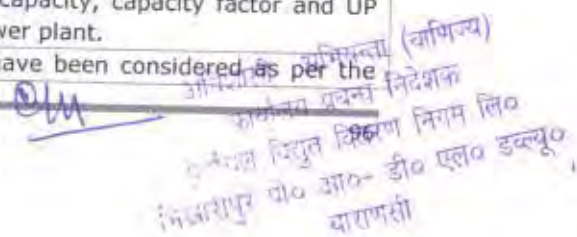 capacity, capacity factor and UP
wer plant.
have been considered as per the
अभियन्ता (वाणिज्य)
कार्यालय प्रबन्ध निदेशक
विद्युत वितरण निगम लि०
भिखारीपुर पो० आ०- डी० एल० डब्ल्यू०
वाराणसी